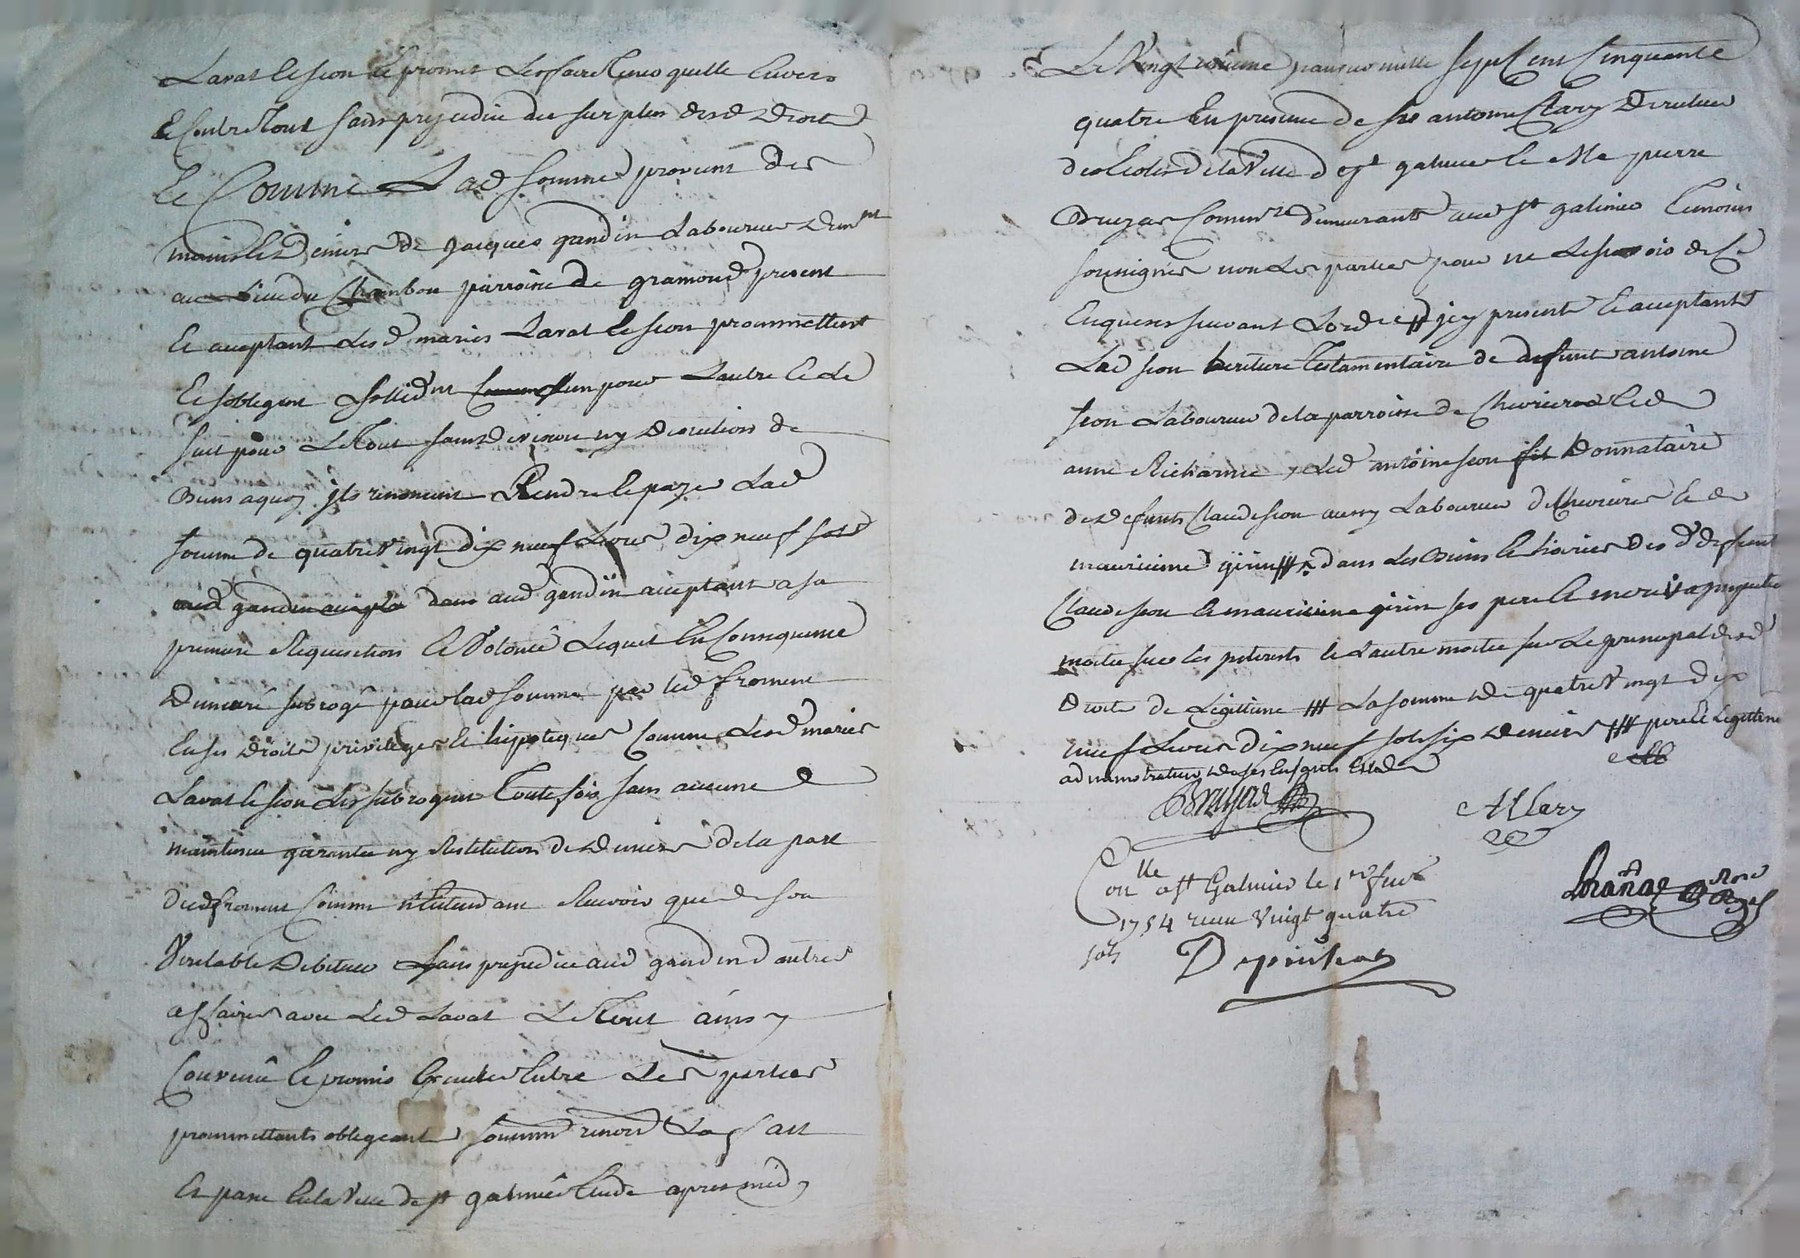 Lavat et sion et promet Les faire tenir quitte Envers
Et Contre tout sans prejudice du surplus desd Droits
Et Comme Lad somme provient des
mains et deniers de Jacques gandin Laboureur Demt
au Lieu du Chambon parroisse de gramond present
Et acceptant Lesd maries Lavat et sion prommettent
Et sobligent sollidnt Comme L'un pour Lautre Et Le
seul pour Le tout sans Division ny Discution de
Biens a quoy ils renoncent Rendre et payer Lad
somme de quatre vingt dix neuf Livres dix neuf sols
aud gandin accepta dans aud gandin acceptant a sa
premiere Requisition Et Volonté Lequel En Consequence
Demeure subrogé pour lad somme par led froment
En ses Droits privileges Et hipoteques Comme Lesd maries
Lavat et sion Les subrogent toutefois sans aucune
maintenue garentie ny Restitution de Deniers de la part
dud froment Comme n'entendant Recevoir que de son
Veritable Debiteur sans prejudice aud gandin d'autres
affaires avec Led Lavat Le tout ainsy
Convenu Et promis Entre Les parties
prommettants obligeants soumm renonc La fait
Et passé En la Ville de st galmier Etude apres midy
Le Vingt janvier mille sept Cent Cinquante
quatre En presence de sr antoine Clary Directeur
des Ecoles de la Ville de st galmier Et Me pierre
Bruyas Commis demeurants aud st galmier Temoins
soussignes non Les parties pour ne Le savoir de Ce
Enquises suivant Lordce # icy presente Et acceptante
Lad sion heritiere testamentaire de defunt antoine
sion Laboureur de la parroisse de Chevrieres Et d
anne Richarme, Led antoine sion fit Donnataire
de defunt Claude sion aussy Laboureur de Chevrieres Et de
mauricienne girin ## dans Les Biens Et hoiries des d defunt
Claude sion Et mauricienne girin ses pere Et mere
moitie sur les interets et Lautre moitie sur Le principal desd
Droits de Legittime ### La somme de quatre Vingt dix
neuf Livres dix neuf sols six Deniers ### pere Et Legittime
administrateur de ses Enfants
Bruyas
A Clary
Conlle a st Galmier le 1er fevr
1754 recu Vingt quatre
sols